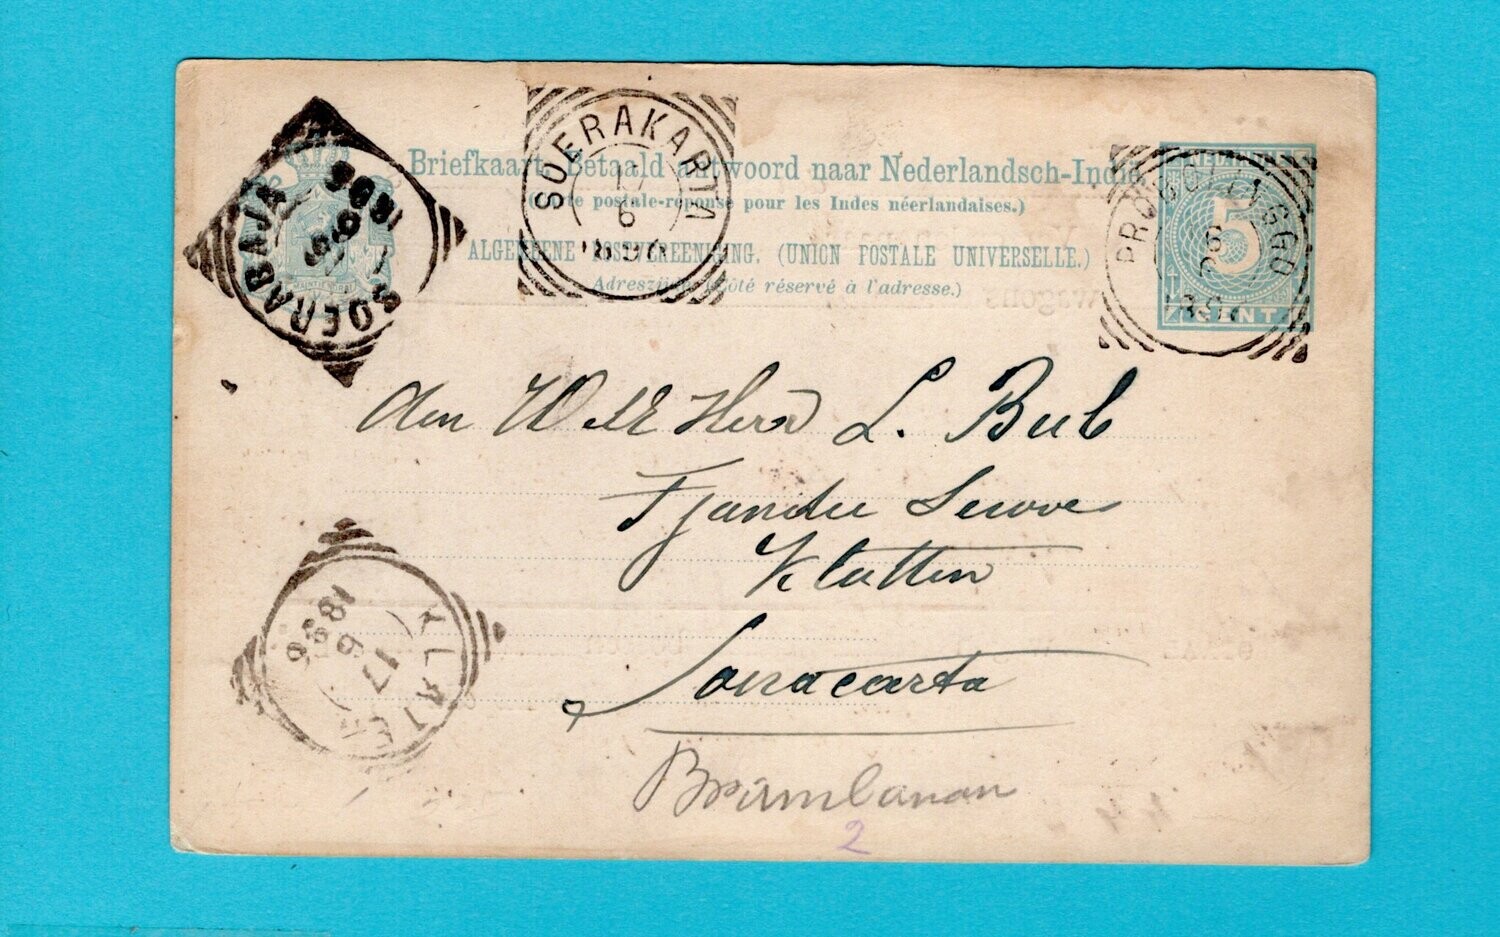 Briefkaart. Betaald antwoord naar Nederlandsch-Indië
(Carte postale-réponse pour les Indes néerlandaises.)
ALGEMEENE POSTVEREENIGING. (UNION POSTALE UNIVERSELLE.)
Adreszijde. (Côté réservé à l'adresse.)
SOERABAJA
1896
SOERAKARTA
17
6
1896
PROBOLINGGO
6
5
CENT
Aan Heer L. Bub
Klatten
Soeracarta
Brambanan
2
KLATEN
17
6
1896